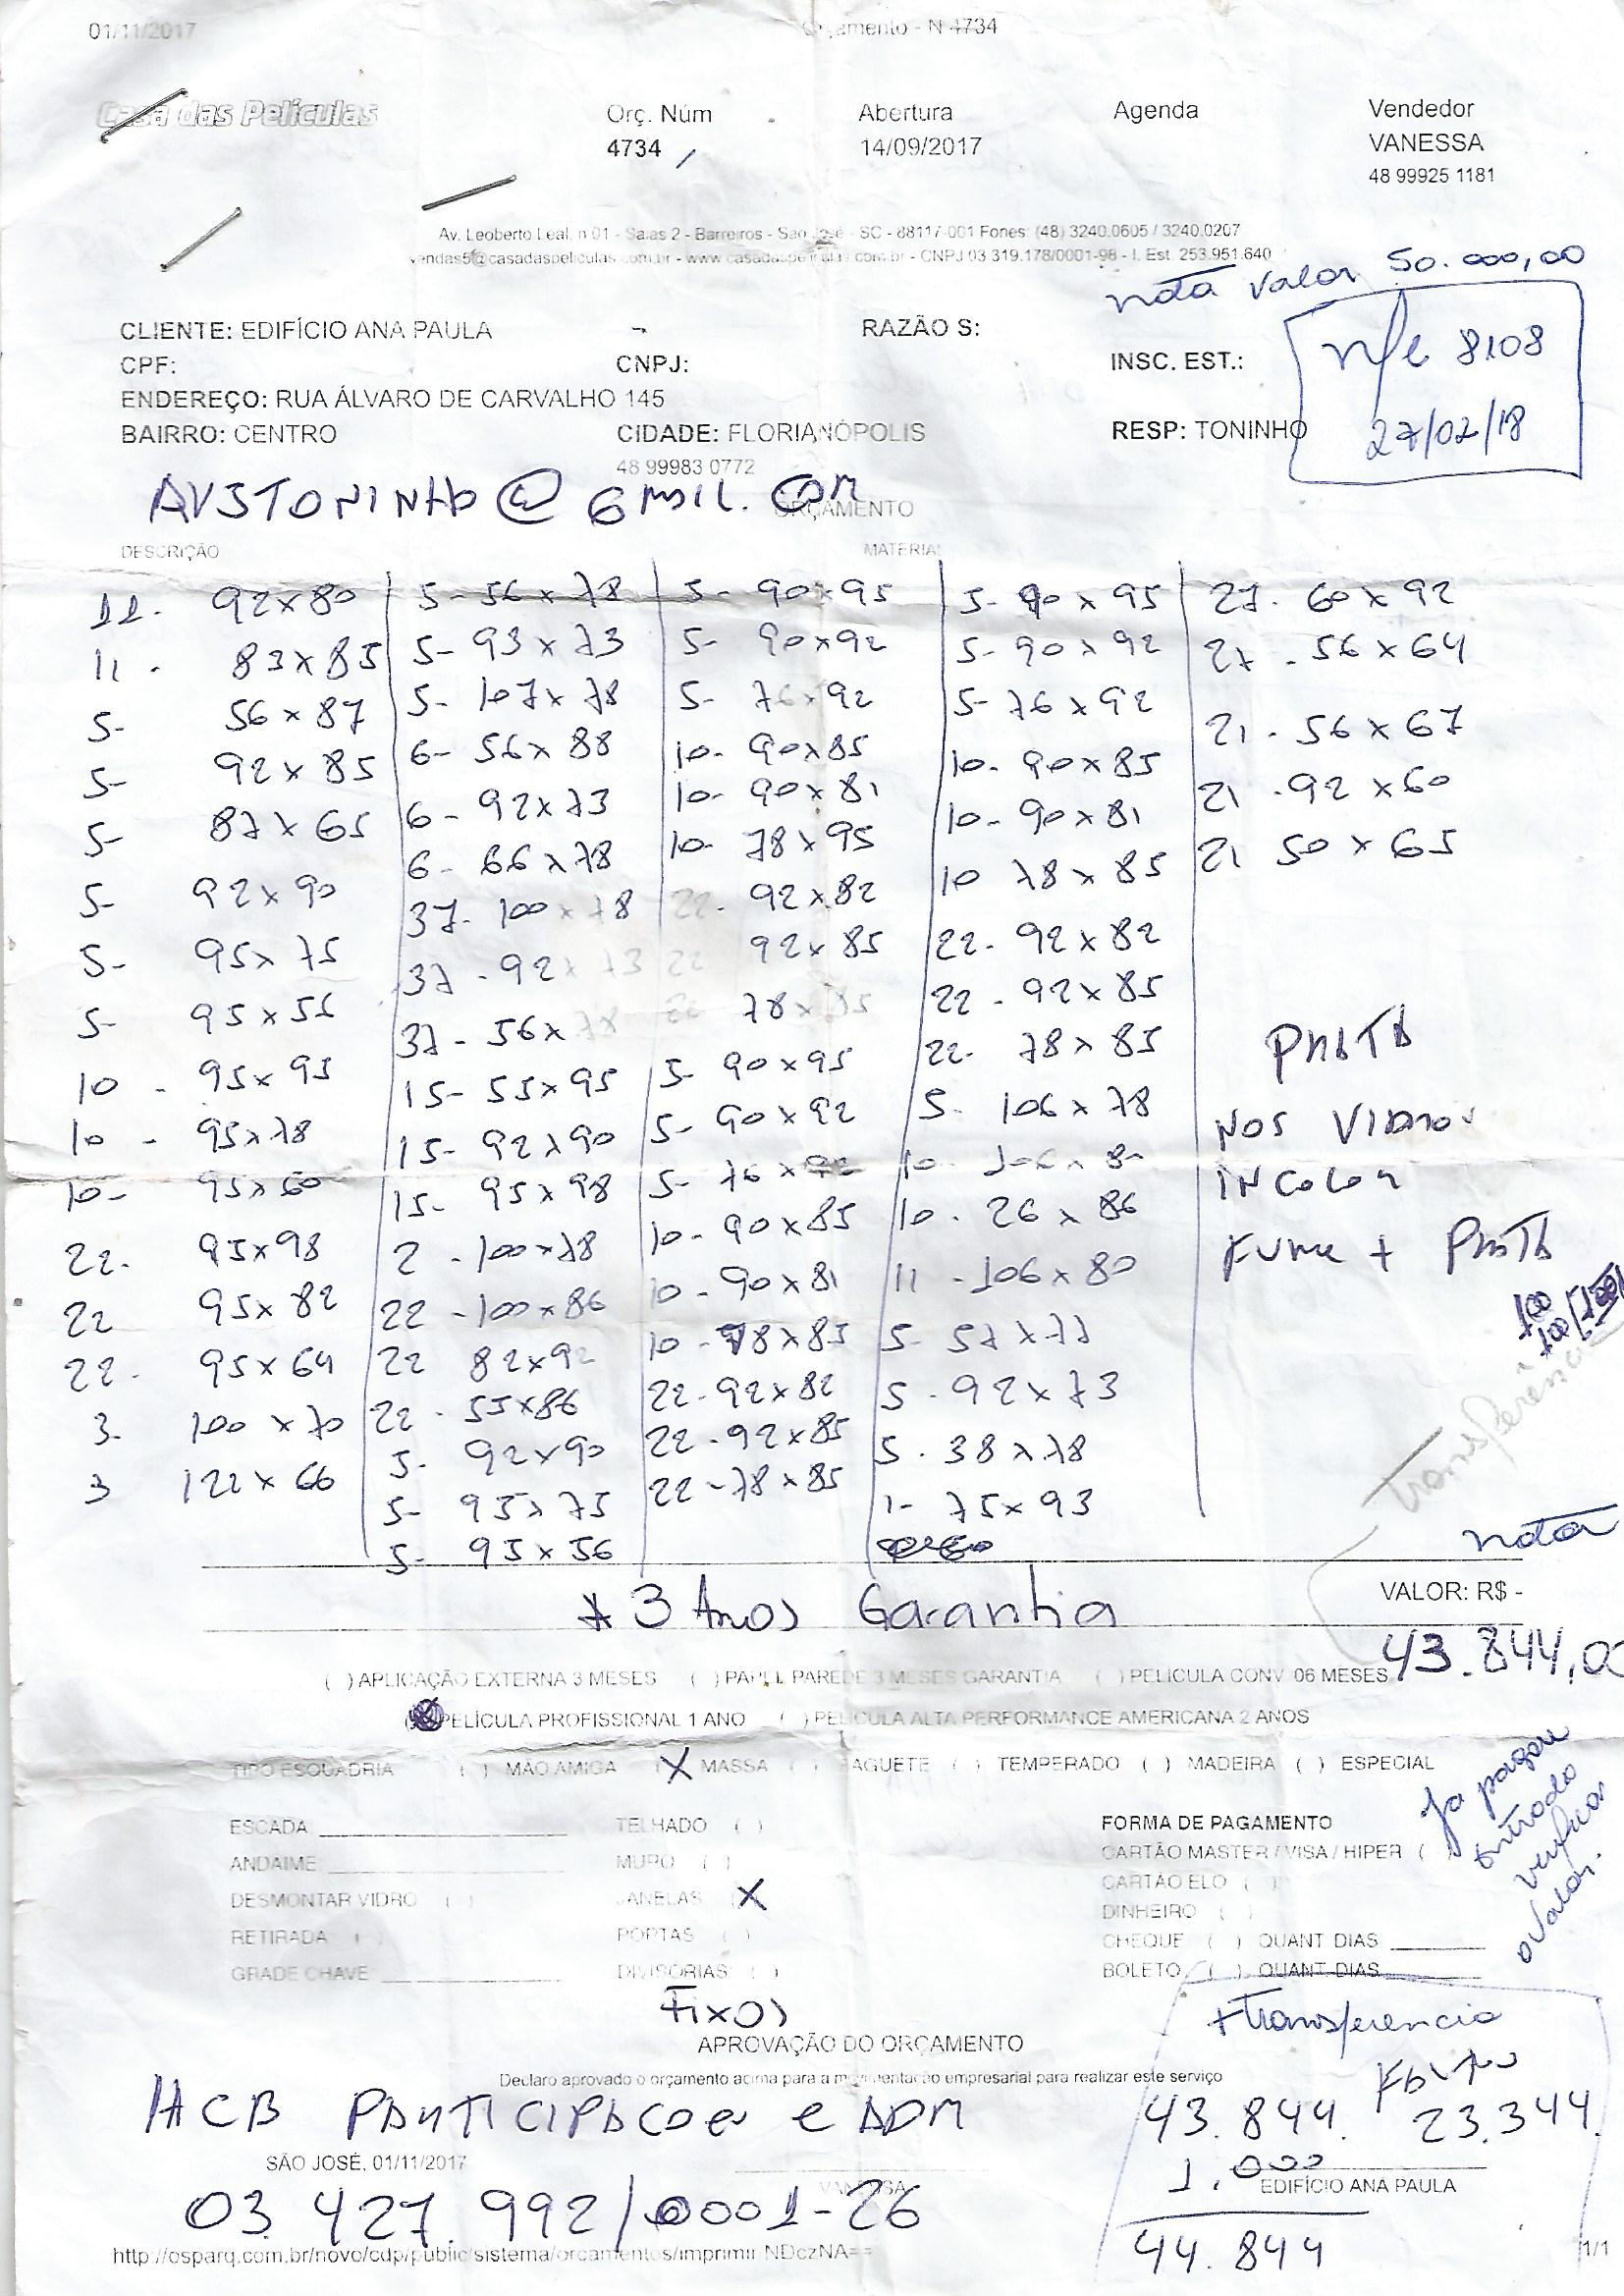 01/11/2017
Orçamento - N 4734
Casa das Películas
Orç. Núm Abertura Agenda Vendedor
4734 14/09/2017 VANESSA
48 99925 1181
Av. Leoberto Leal, n 01 - Salas 2 - Barreiros - São José - SC - 88117-001 Fones: (48) 3240.0605 / 3240.0207
vendas5@casadaspeliculas.com.br - www.casadaspeliculas.com.br - CNPJ 03.319.178/0001-98 - I. Est. 253.951.640
nota valor 50.000,00
CLIENTE: EDIFÍCIO ANA PAULA RAZÃO S:
CPF: CNPJ: INSC. EST.:
nfe 8108
ENDEREÇO: RUA ÁLVARO DE CARVALHO 145
BAIRRO: CENTRO CIDADE: FLORIANÓPOLIS RESP: TONINHO
27/02/18
48 99983 0772
AVSTONINHO@GMAIL.COM
ORÇAMENTO
DESCRIÇÃO MATERIAL
11- 92x80
11- 83x85
5- 56x87
5- 92x85
5- 87x65
5- 92x90
5- 95x75
5- 95x56
10- 95x95
10- 95x78
10- 95x60
22- 95x98
22 95x82
22- 95x64
3- 100x70
3 122x66
5- 56x78
5- 93x73
5- 107x78
6- 56x88
6- 92x73
6- 66x78
37- 100x78
37- 92x73
37- 56x78
15- 55x95
15- 92x90
15- 95x98
2- 100x78
22- 100x86
22 82x92
22- 55x86
5- 92x90
5- 95x75
5- 95x56
5- 90x95
5- 90x92
5- 76x92
10- 90x85
10- 90x81
10- 78x95
22- 92x82
22 92x85
22 78x85
5- 90x95
5- 90x92
5- 76x92
10- 90x85
10- 90x81
10- 78x85
22- 92x82
22- 92x85
22- 78x85
5- 90x95
5- 90x92
5- 76x92
10- 90x85
10- 90x81
10 78x85
22- 92x82
22- 92x85
22- 78x85
5- 106x78
10- 106x80
10- 26x86
11- 106x80
5- 57x77
5- 92x73
5- 38x78
1- 75x93
27- 60x92
27- 56x64
21- 56x67
21- 92x60
21 50x65
PRATA
NOS VIDROS
INCOLOR
FUME + PRATA
transferência
nota
VALOR: R$ -
* 3 Anos Garantia
43.844,00
( ) APLICAÇÃO EXTERNA 3 MESES ( ) PAPEL PAREDE 3 MESES GARANTIA ( ) PELÍCULA CONV 06 MESES
( ) PELÍCULA PROFISSIONAL 1 ANO ( ) PELÍCULA ALTA PERFORMANCE AMERICANA 2 ANOS
TIPO ESQUADRIA ( ) MÃO AMIGA (X) MASSA ( ) BAGUETE ( ) TEMPERADO ( ) MADEIRA ( ) ESPECIAL
Ja pagou
entrada
verificar
o valor.
ESCADA TELHADO ( ) FORMA DE PAGAMENTO
ANDAIME MURO ( ) CARTÃO MASTER / VISA / HIPER (
DESMONTAR VIDRO ( ) JANELAS (X) CARTÃO ELO ( )
RETIRADA ( ) PORTAS ( ) DINHEIRO ( )
GRADE CHAVE DIVISÓRIAS ( ) CHEQUE ( ) QUANT DIAS
BOLETO ( ) QUANT DIAS
Fixos
+ transferencia
APROVAÇÃO DO ORÇAMENTO
Declaro aprovado o orçamento acima para a movimentação empresarial para realizar este serviço
HCB PARTICIPACOES e ADM
43.844. Faltou 23.344
SÃO JOSÉ, 01/11/2017
1.000
VANESSA EDIFÍCIO ANA PAULA
03.427.992/0001-26
44.844
http://osparq.com.br/novo/cdp/public/sistema/orcamentos/imprimir NDczNA==
1/1